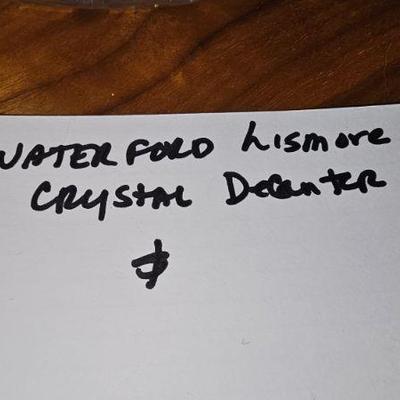 WATERFORD Lismore
CRYSTAL Decanter
$